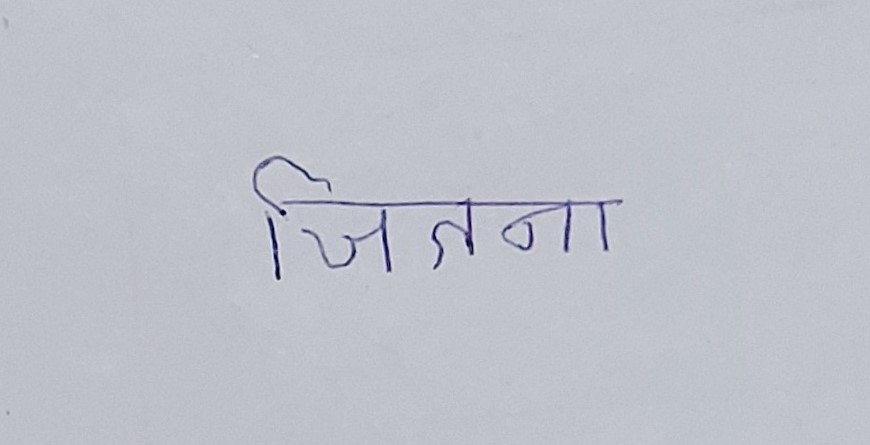 जितना